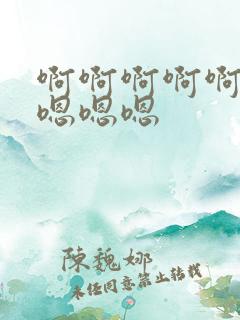 啊啊啊啊啊
嗯嗯嗯
陳魏娜
未经同意禁止转载